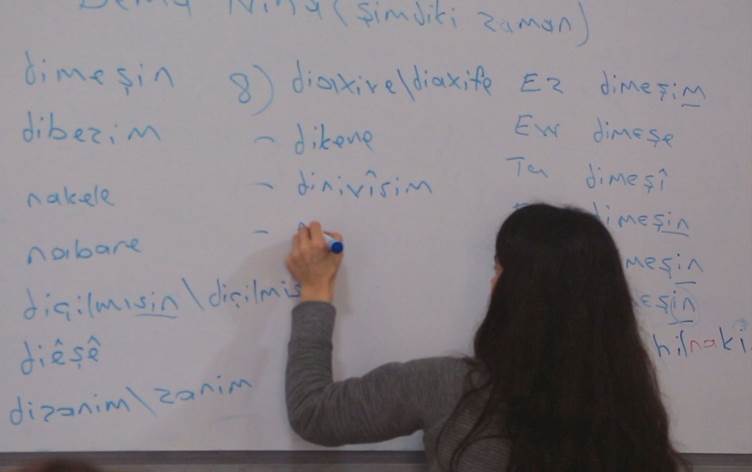 Dema Niha (şimdiki zaman)
dimeşin
dibezim
nakele
nabare
diçilmısin \ diçilmis
diêşê
dizanim \ zanim
8) diaxive / diaxife
- dikene
- dinivîsim
-
Ez dimeşim
Ew dimeşe
Tu dimeşî
dimeşin
meşin
eşin
hilnaki